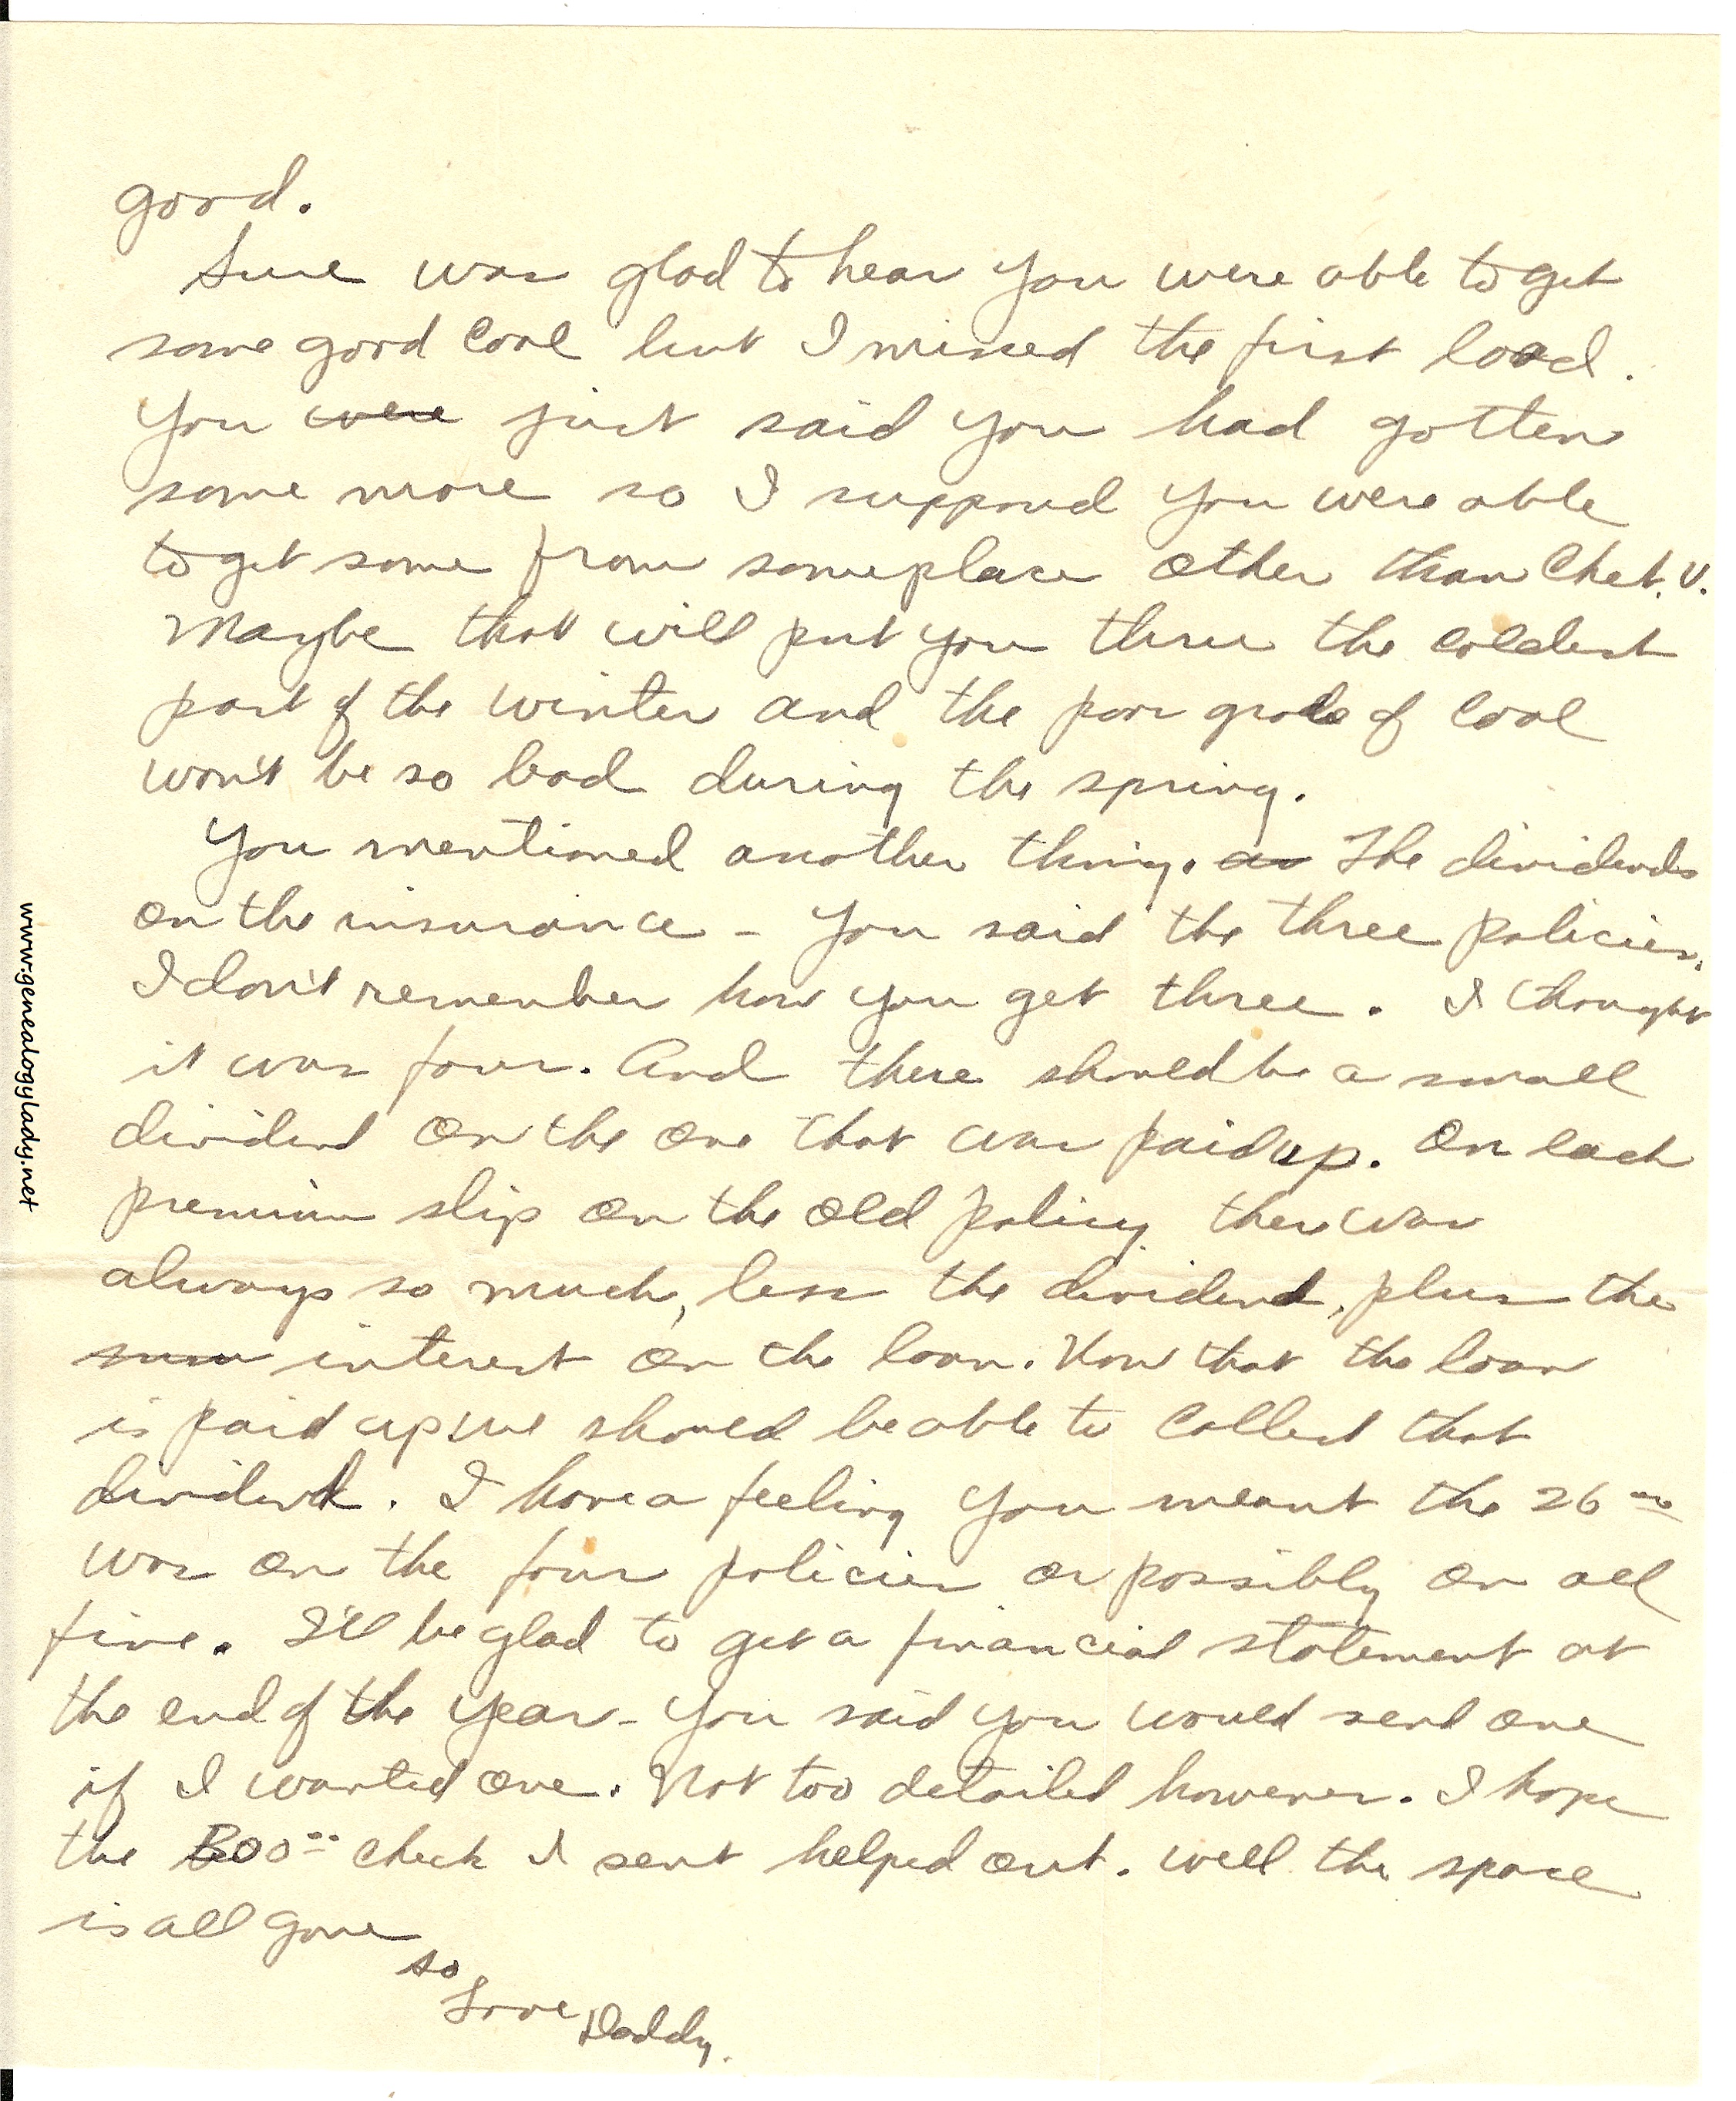 good.
Sure was glad to hear you were able to get
some good coal but I missed the first load.
You were just said you had gotten
some more so I supposed you were able
to get some from someplace other than Chet. V.
Maybe that will put you thru the coldest
part of the winter and the poor grade of coal
won't be so bad during the spring.
You mentioned another thing. as The dividends
on the insurance - You said the three policies.
I don't remember how you get three. I thought
it was four. And there should be a small
dividend on the one that was paid up. On each
premium slip on the old policy there was
always so much, less the dividend, plus the
interest on the loan. Now that the loan
is paid up, we should be able to collect that
dividend. I have a feeling you meant the 26
was on the four policies or possibly on all
five. I'll be glad to get a financial statement at
the end of the year - You said you would send one
if I wanted one. Not too detailed however. I hope
the check I sent helped out. Well the space
is all gone
so
Love Daddy.
www.genealogylady.net